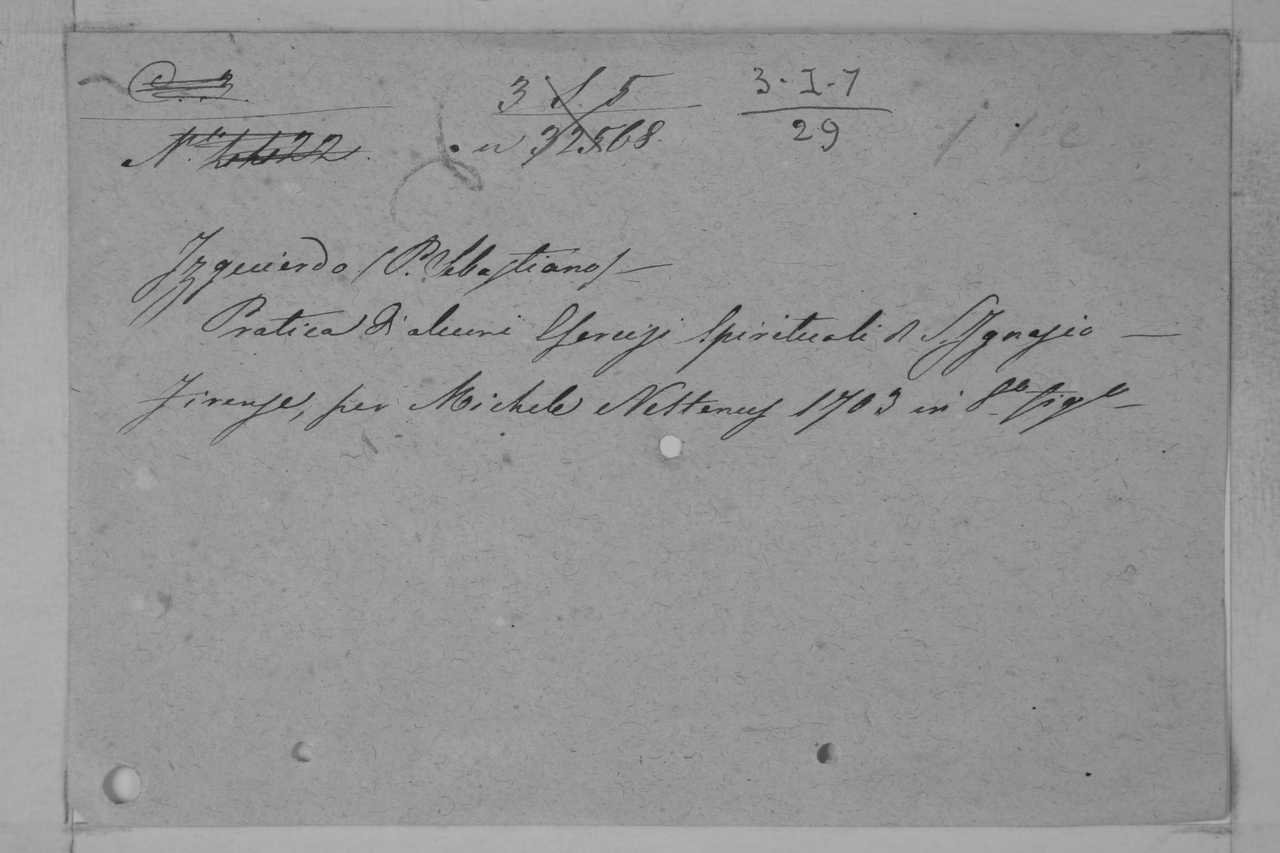 3 S. 5
3-I-7
32568
29
Izquierdo (P. Sebastiano) —
Pratica di alcuni Esercizj Spirituali di S. Ignazio —
Firenze, per Michele Nestenus 1703 in 8.° fig.° —